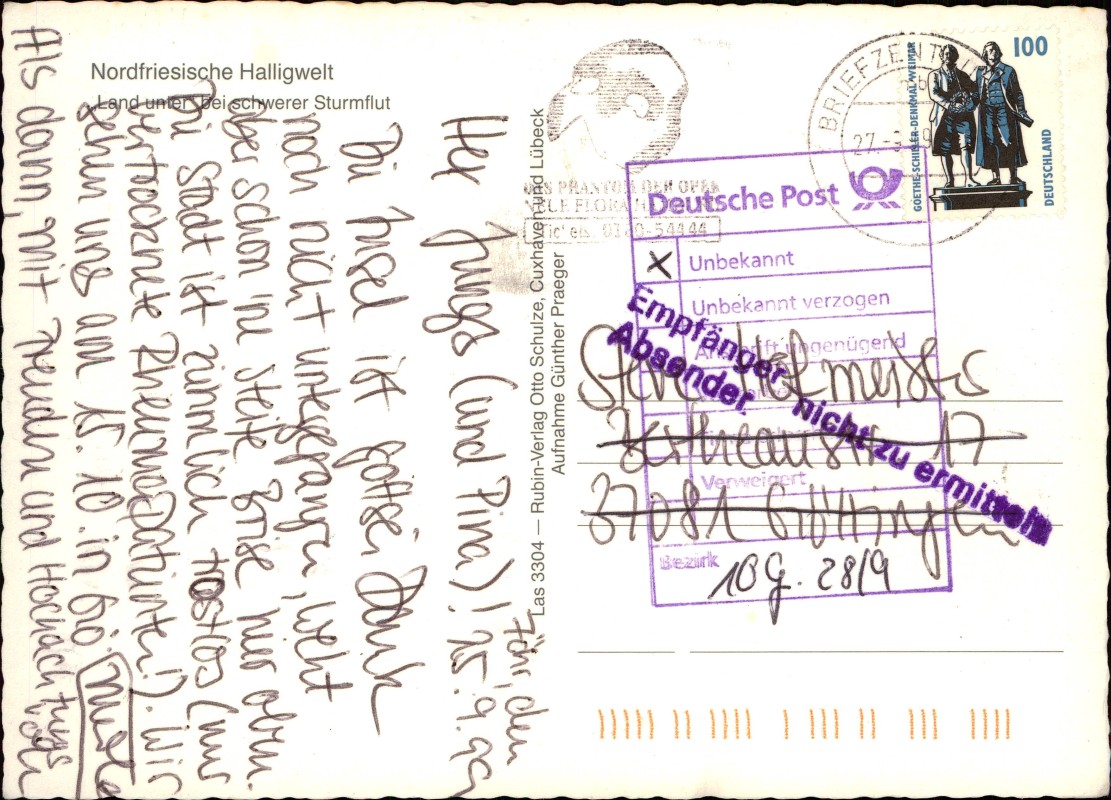 Nordfriesische Halligwelt
„Land unter“ bei schwerer Sturmflut
Föhr, den
25.9.99
Hey Jungs (und Pina)!
Die Insel ist Gottsei Dank
noch nicht untergegangen, weht
aber schon ne steife Brise hier oben.
Die Stadt ist ziemlich trostlos (nur
vertrocknete Rheuma
). Wir
sehn uns am 15.10. in Gö.
Als dann, mit Freuden und Hochachtungsvoll
Las 3304 — Rubin-Verlag Otto Schulze, Cuxhaven und Lübeck
Aufnahme Günther Praeger
DAS PHANTOM DER OPER
NEUE FLORA
Tickets: 0180-54444
BRIEFZENTRUM
27.
GOETHE-SCHILLER-DENKMAL-WEIMAR
100
DEUTSCHLAND
Deutsche Post
X Unbekannt
Unbekannt verzogen
Anschrift ungenügend
Verweigert
Bezirk
10 G. 28/9
Empfänger nicht zu ermitteln
Absender
17
37081 Göttingen